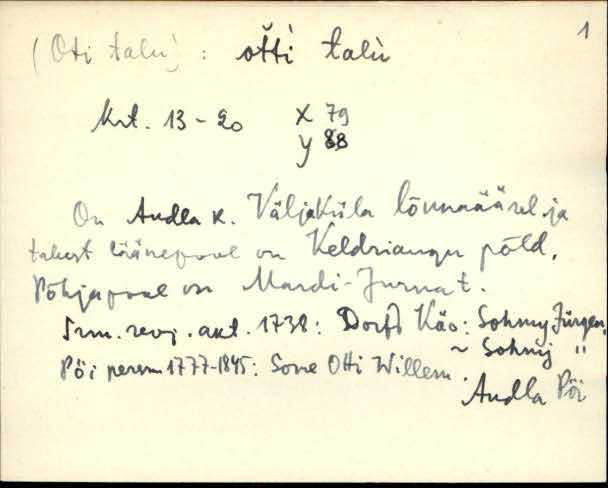 1
(Oti talu) : oťťi talu
Krt. 13 - 20 X 79
Y 88
On Andla k. Väljaküla lõunaäärel ja
talust läänepool on Keldriaugu põld.
Põhjapool on Mardi-Jurna t.
Srm. revj. akt. 1738: Dorf Käo: Sohmy Jürgen,
~ Sohmy "
Pöi perem 1777-1845: Sone Otti Willem.
Andla Pöi